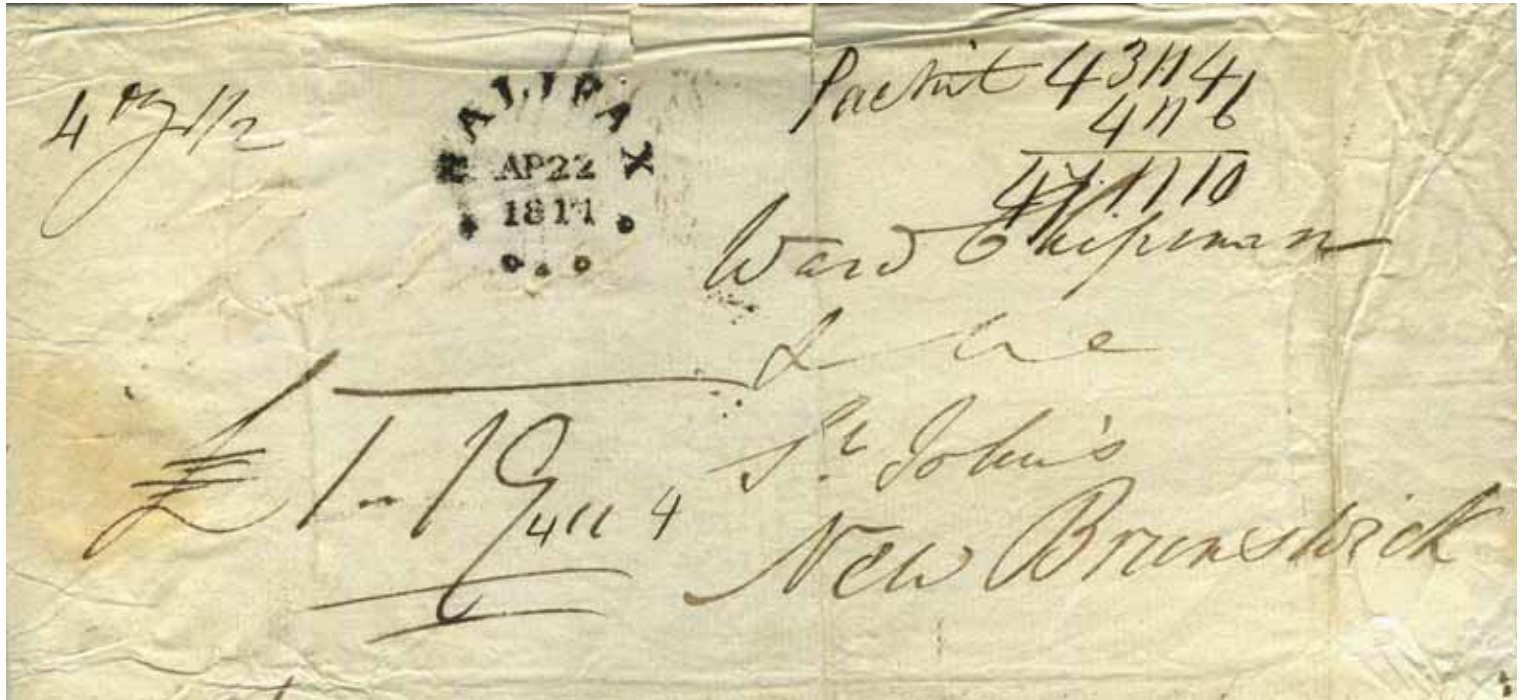 4 oz 1/2
HALIFAX
AP22
1817
Packit 43 11 4
4 11 6
47 11 10
Ward Chipman
St. John's
New Brunswick
£1-19
4 11 4